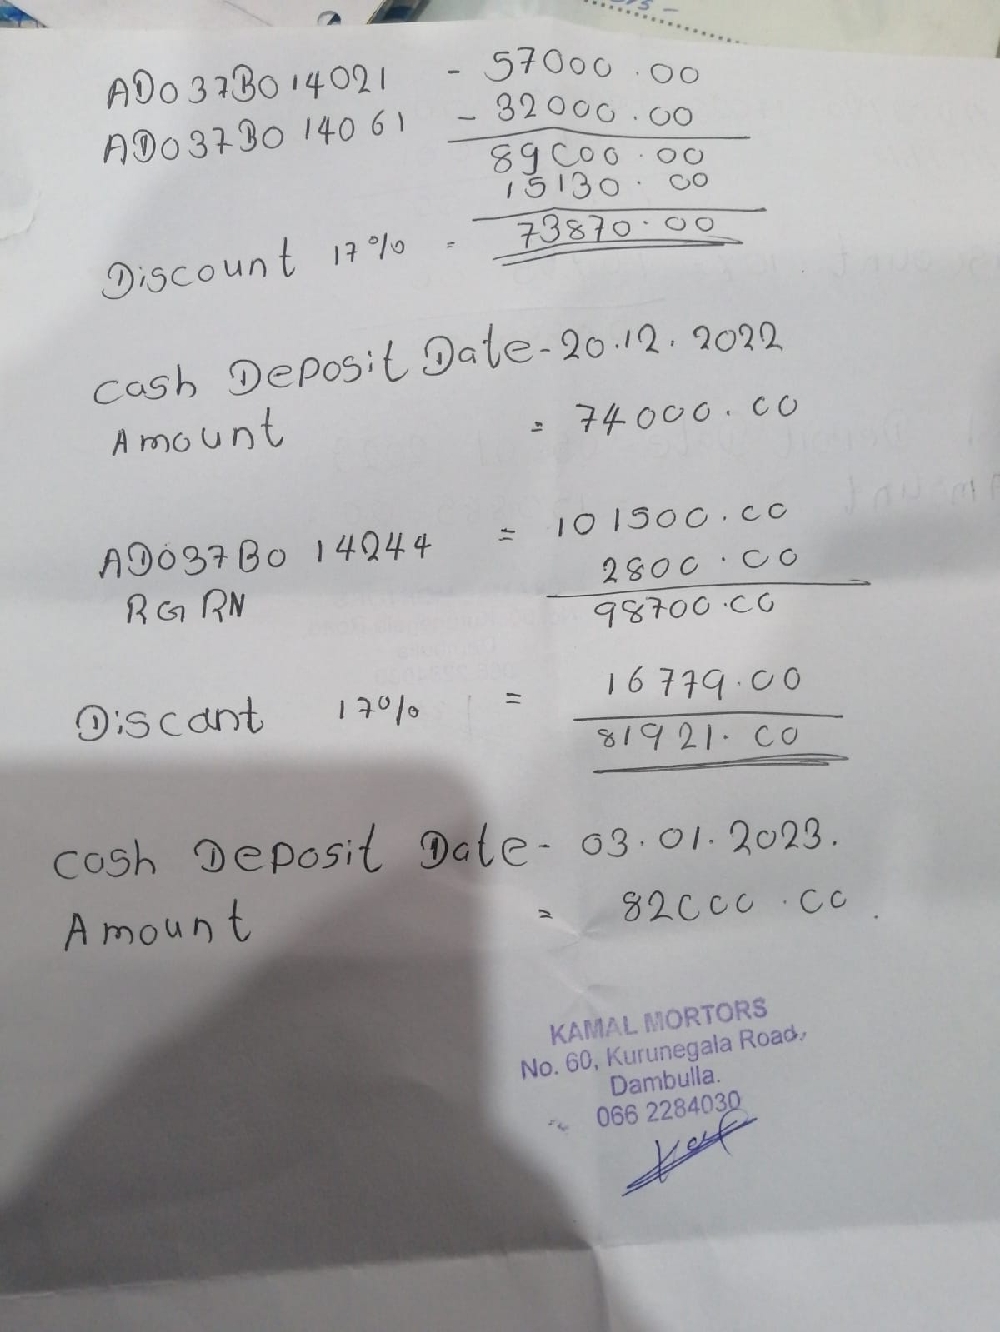 AD037B014021 - 57000.00
AD037B014061 - 32000.00
89000.00
15130.00
Discount 17% = 73870.00
Cash Deposit Date - 20.12.2022
Amount = 74000.00
AD037B014244 = 101500.00
RGRN 2800.00
98700.00
Discant 17% = 16779.00
81921.00
Cash Deposit Date - 03.01.2023.
Amount = 82000.00.
KAMAL MORTORS
No. 60, Kurunegala Road,
Dambulla.
066 2284030